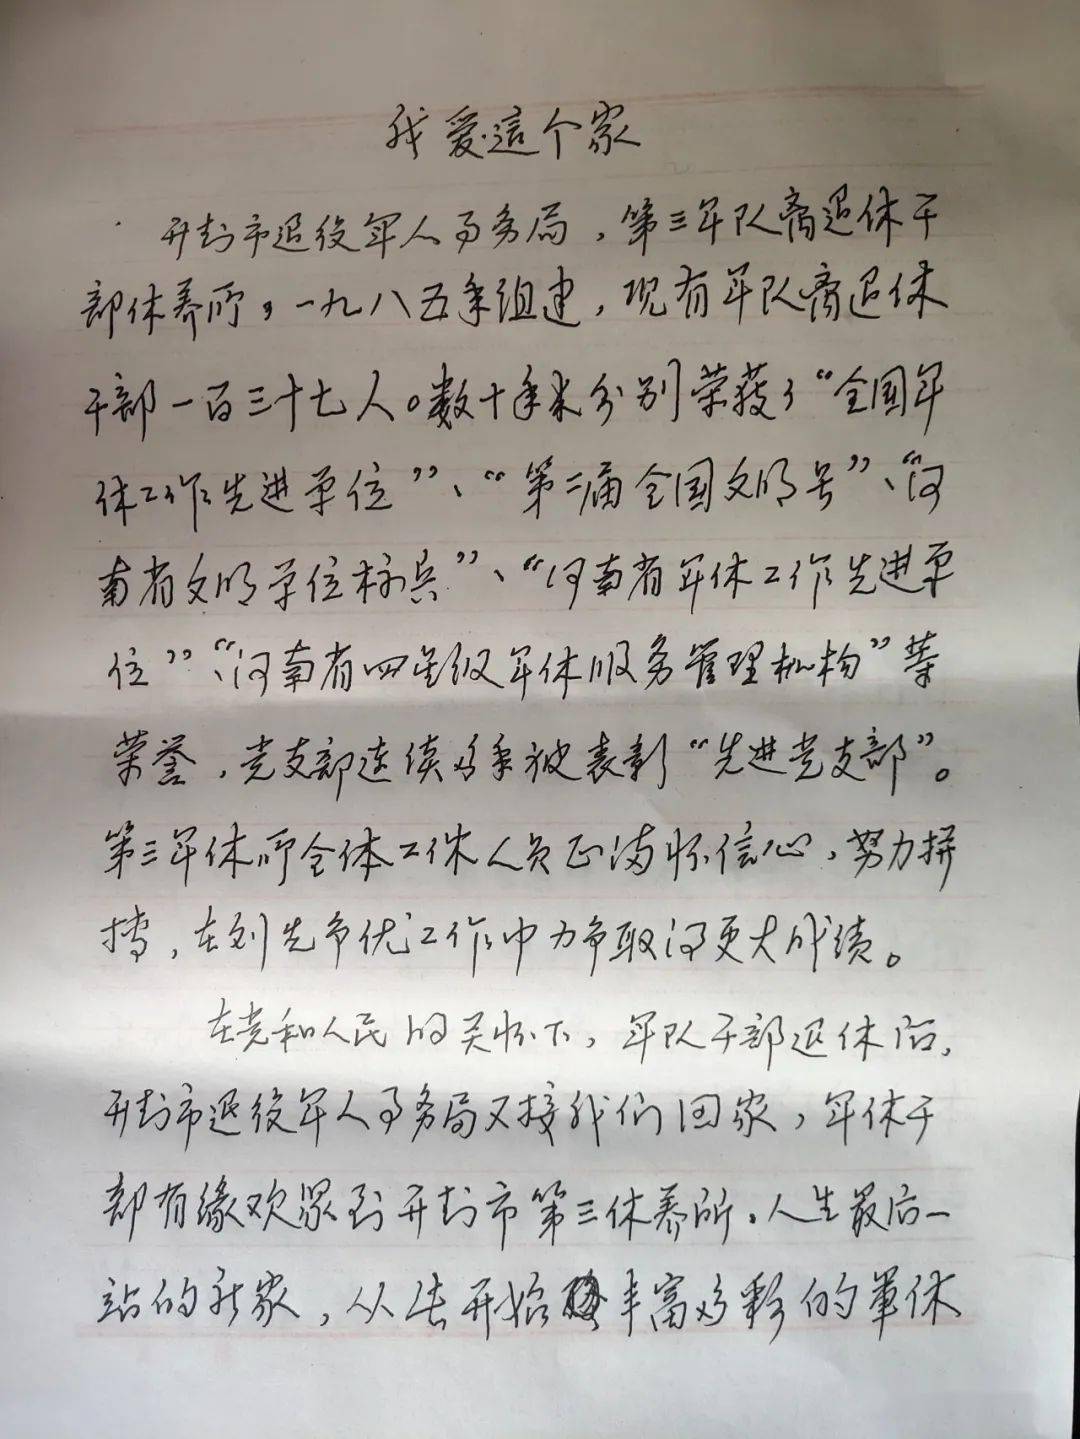 我爱這个家
开封市退役军人事务局，第三军队离退休干
部休养所，一九八五年组建，现有军队离退休
干部一百三十七人。数十年来分别荣获了“全国军
休工作先进单位”、“第二届全国文明号”、“河
南省文明单位标兵”、“河南省军休工作先进单
位”、“河南省四星级军休服务管理机构”等
荣誉，党支部连续多年被表彰“先进党支部”。
第三军休所全体工休人员正满怀信心，努力拼
搏，在创先争优工作中力争取得更大成绩。
在党和人民的关怀下，军队干部退休后，
开封市退役军人事务局又接我们回家，军休干
部有缘欢聚到开封市第三休养所。人生最后一
站的新家，从此开始丰富多彩的軍休